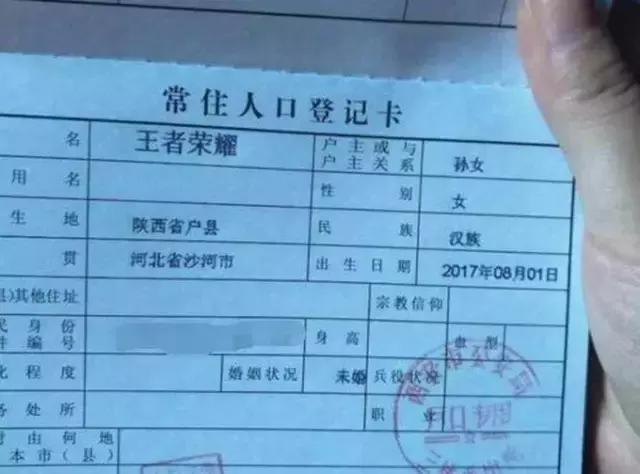 常住人口登记卡
名 王者荣耀 户主或与
户主关系 孙女
用名 性别 女
生地 陕西省户县 民族 汉族
贯 河北省沙河市 出生日期 2017年08月01日
其他住址 宗教信仰
民身份
件编号 身高 血型
化程度 婚姻状况 未婚 兵役状况
务处所 职业
由何地
本市（县）
户口专用